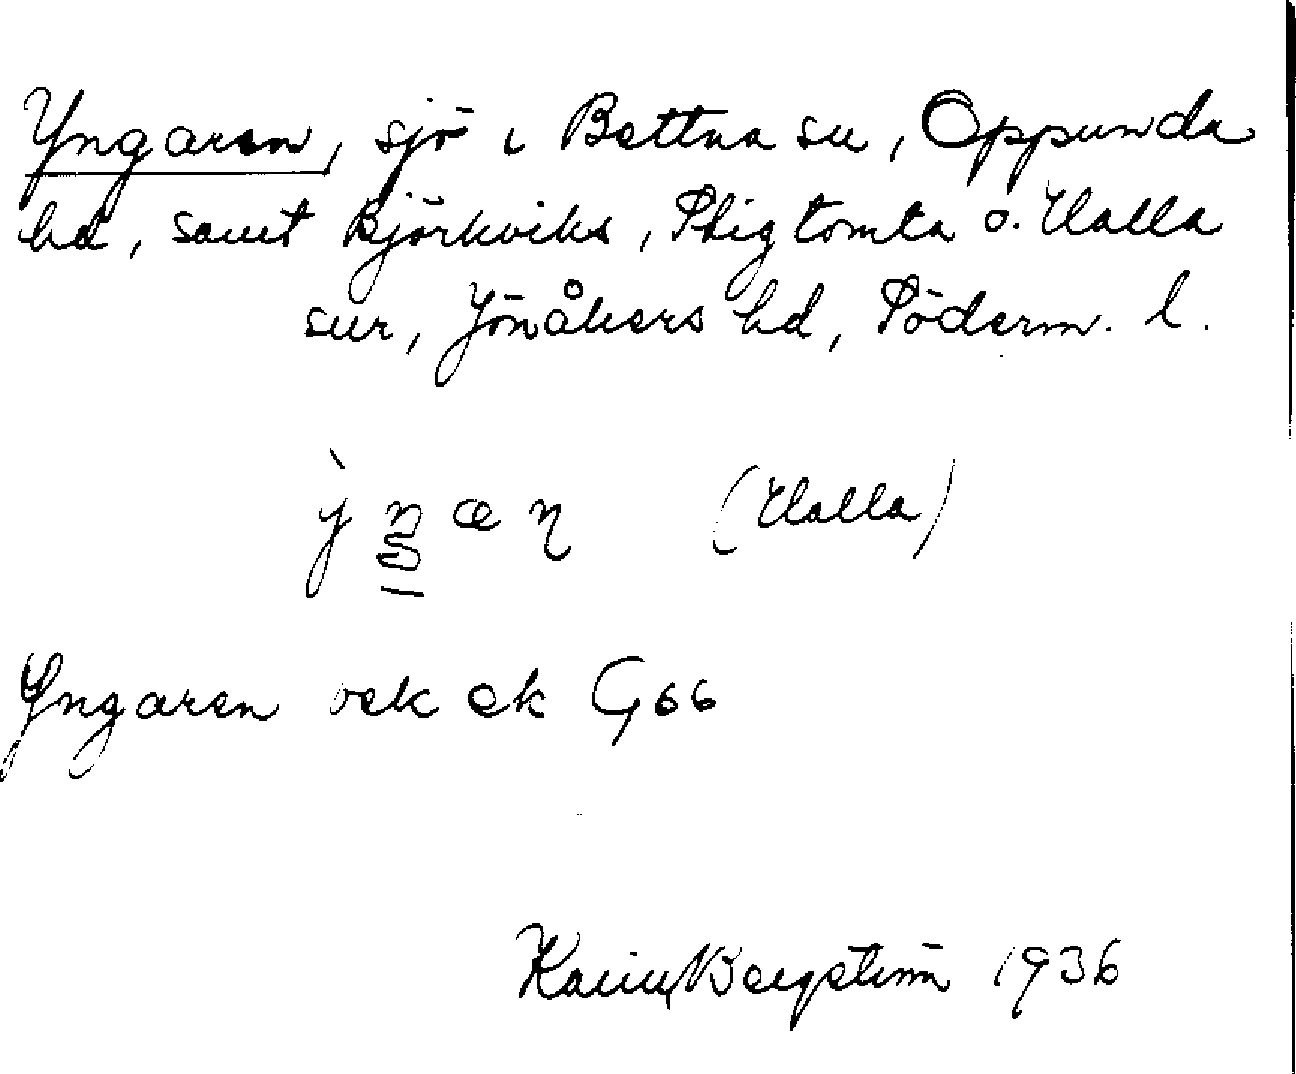 Yngaren, sjö i Bettna sn, Oppunda
hd, samt Björkviks, Stigtomta o. Halla
snr, Jönåkers hd, Söderm. l.
(Halla)
Yngaren oek ek G 66
Karin Bergström 1936